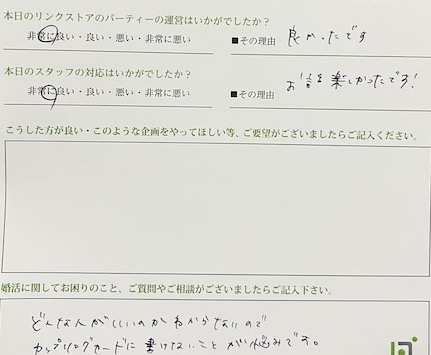 本日のリンクストアのパーティーの運営はいかがでしたか?
非常に良い・良い・悪い・非常に悪い ■その理由 良かったです
本日のスタッフの対応はいかがでしたか?
非常に良い・良い・悪い・非常に悪い ■その理由 お話も楽しかったです!
こうした方が良い・このような企画をやってほしい等、ご要望がございましたらご記入ください。
婚活に関してお困りのこと、ご質問やご相談がございましたらご記入下さい。
どんな人がいいのかわからないので
カップリングカードに書けないことが悩みです。